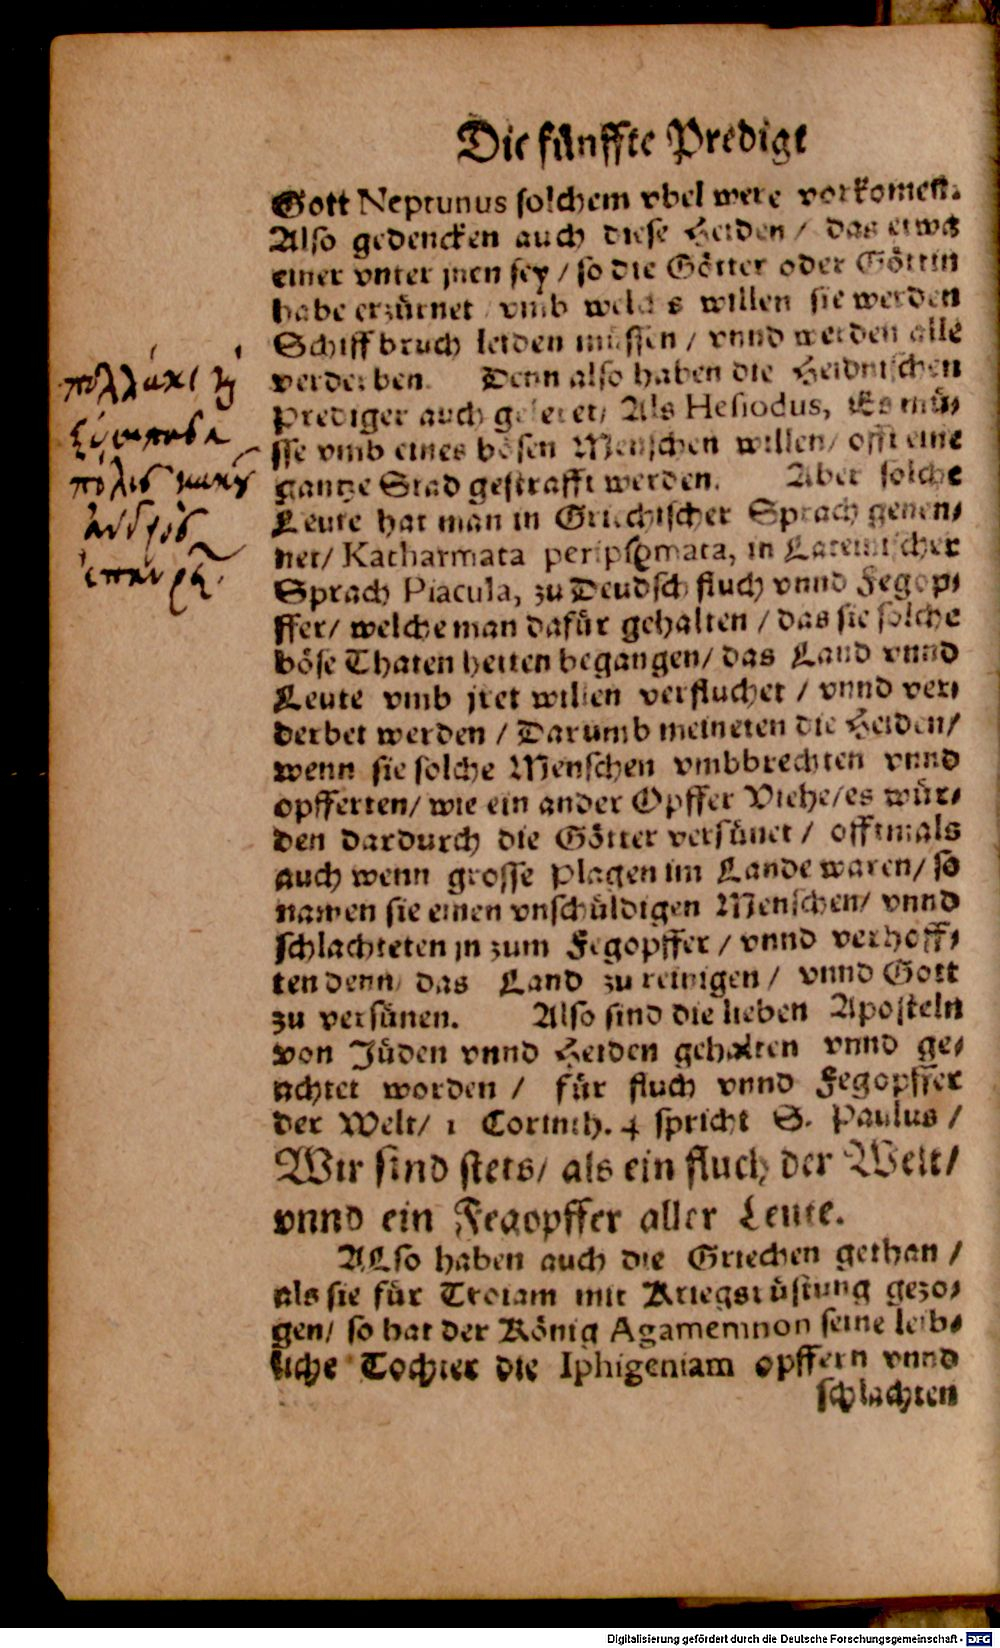 Die fünffte Predigt
Gott Neptunus solchem vbel were vorkomen.
Also gedencken auch diese Heiden / das etwa
einer vnter jnen sey / so die Götter oder Göttin
habe erzürnet / vmb welchs willen sie werden
Schiffbruch leiden müssen / vnnd werden alle
verderben. Denn also haben die Heidnischen
Prediger auch geleret / Als Hesiodus, Es mü⸗
sse vmb eines bösen Menschen willen / offt eine
gantze Stad gestrafft werden. Aber solche
Leute hat man in Griechischer Sprach genen⸗
net / Katharmata peripsomata, in Lateinischer
Sprach Piacula, zu Deudsch fluch vnnd Fegop⸗
ffer / welche man dafür gehalten / das sie solche
böse Thaten hetten begangen / das Land vnnd
Leute vmb jret willen verfluchet / vnnd ver⸗
derbet werden / Darumb meineten die Heiden /
wenn sie solche Menschen vmbbrechten vnnd
opfferten / wie ein ander Opffer Viehe / es wür⸗
den dardurch die Götter versünet / offtmals
auch wenn grosse Plagen im Lande waren / so
namen sie einen vnschüldigen Menschen / vnnd
schlachteten jn zum Fegopffer / vnnd verhoff⸗
ten denn / das Land zu reinigen / vnnd Gott
zu versünen. Also sind die lieben Aposteln
von Jüden vnnd Heiden gehalten vnnd ge⸗
achtet worden / für fluch vnnd Fegopffer
der Welt / 1 Corinth. 4 spricht S. Paulus /
Wir sind stets / als ein fluch der Welt /
vnnd ein Fegopffer aller Leute.
ALso haben auch die Griechen gethan /
als sie für Troiam mit Kriegsrüstung gezo⸗
gen / so hat der König Agamemnon seine leib⸗
liche Tochter die Iphigeniam opffern vnnd
schlachten
πολλάκι
ξύμπασα
πόλις κακοῦ
ἀνδρὸς